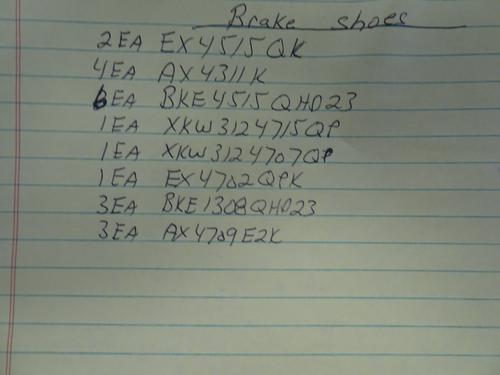 Brake shoes
2EA EX4515QK
4EA AX4311K
6EA BKE4515QHD23
1EA XKW3124715QP
1EA XKW3124707QP
1EA EX4702QPK
3EA BKE1308QHD23
3EA AX4709E2K